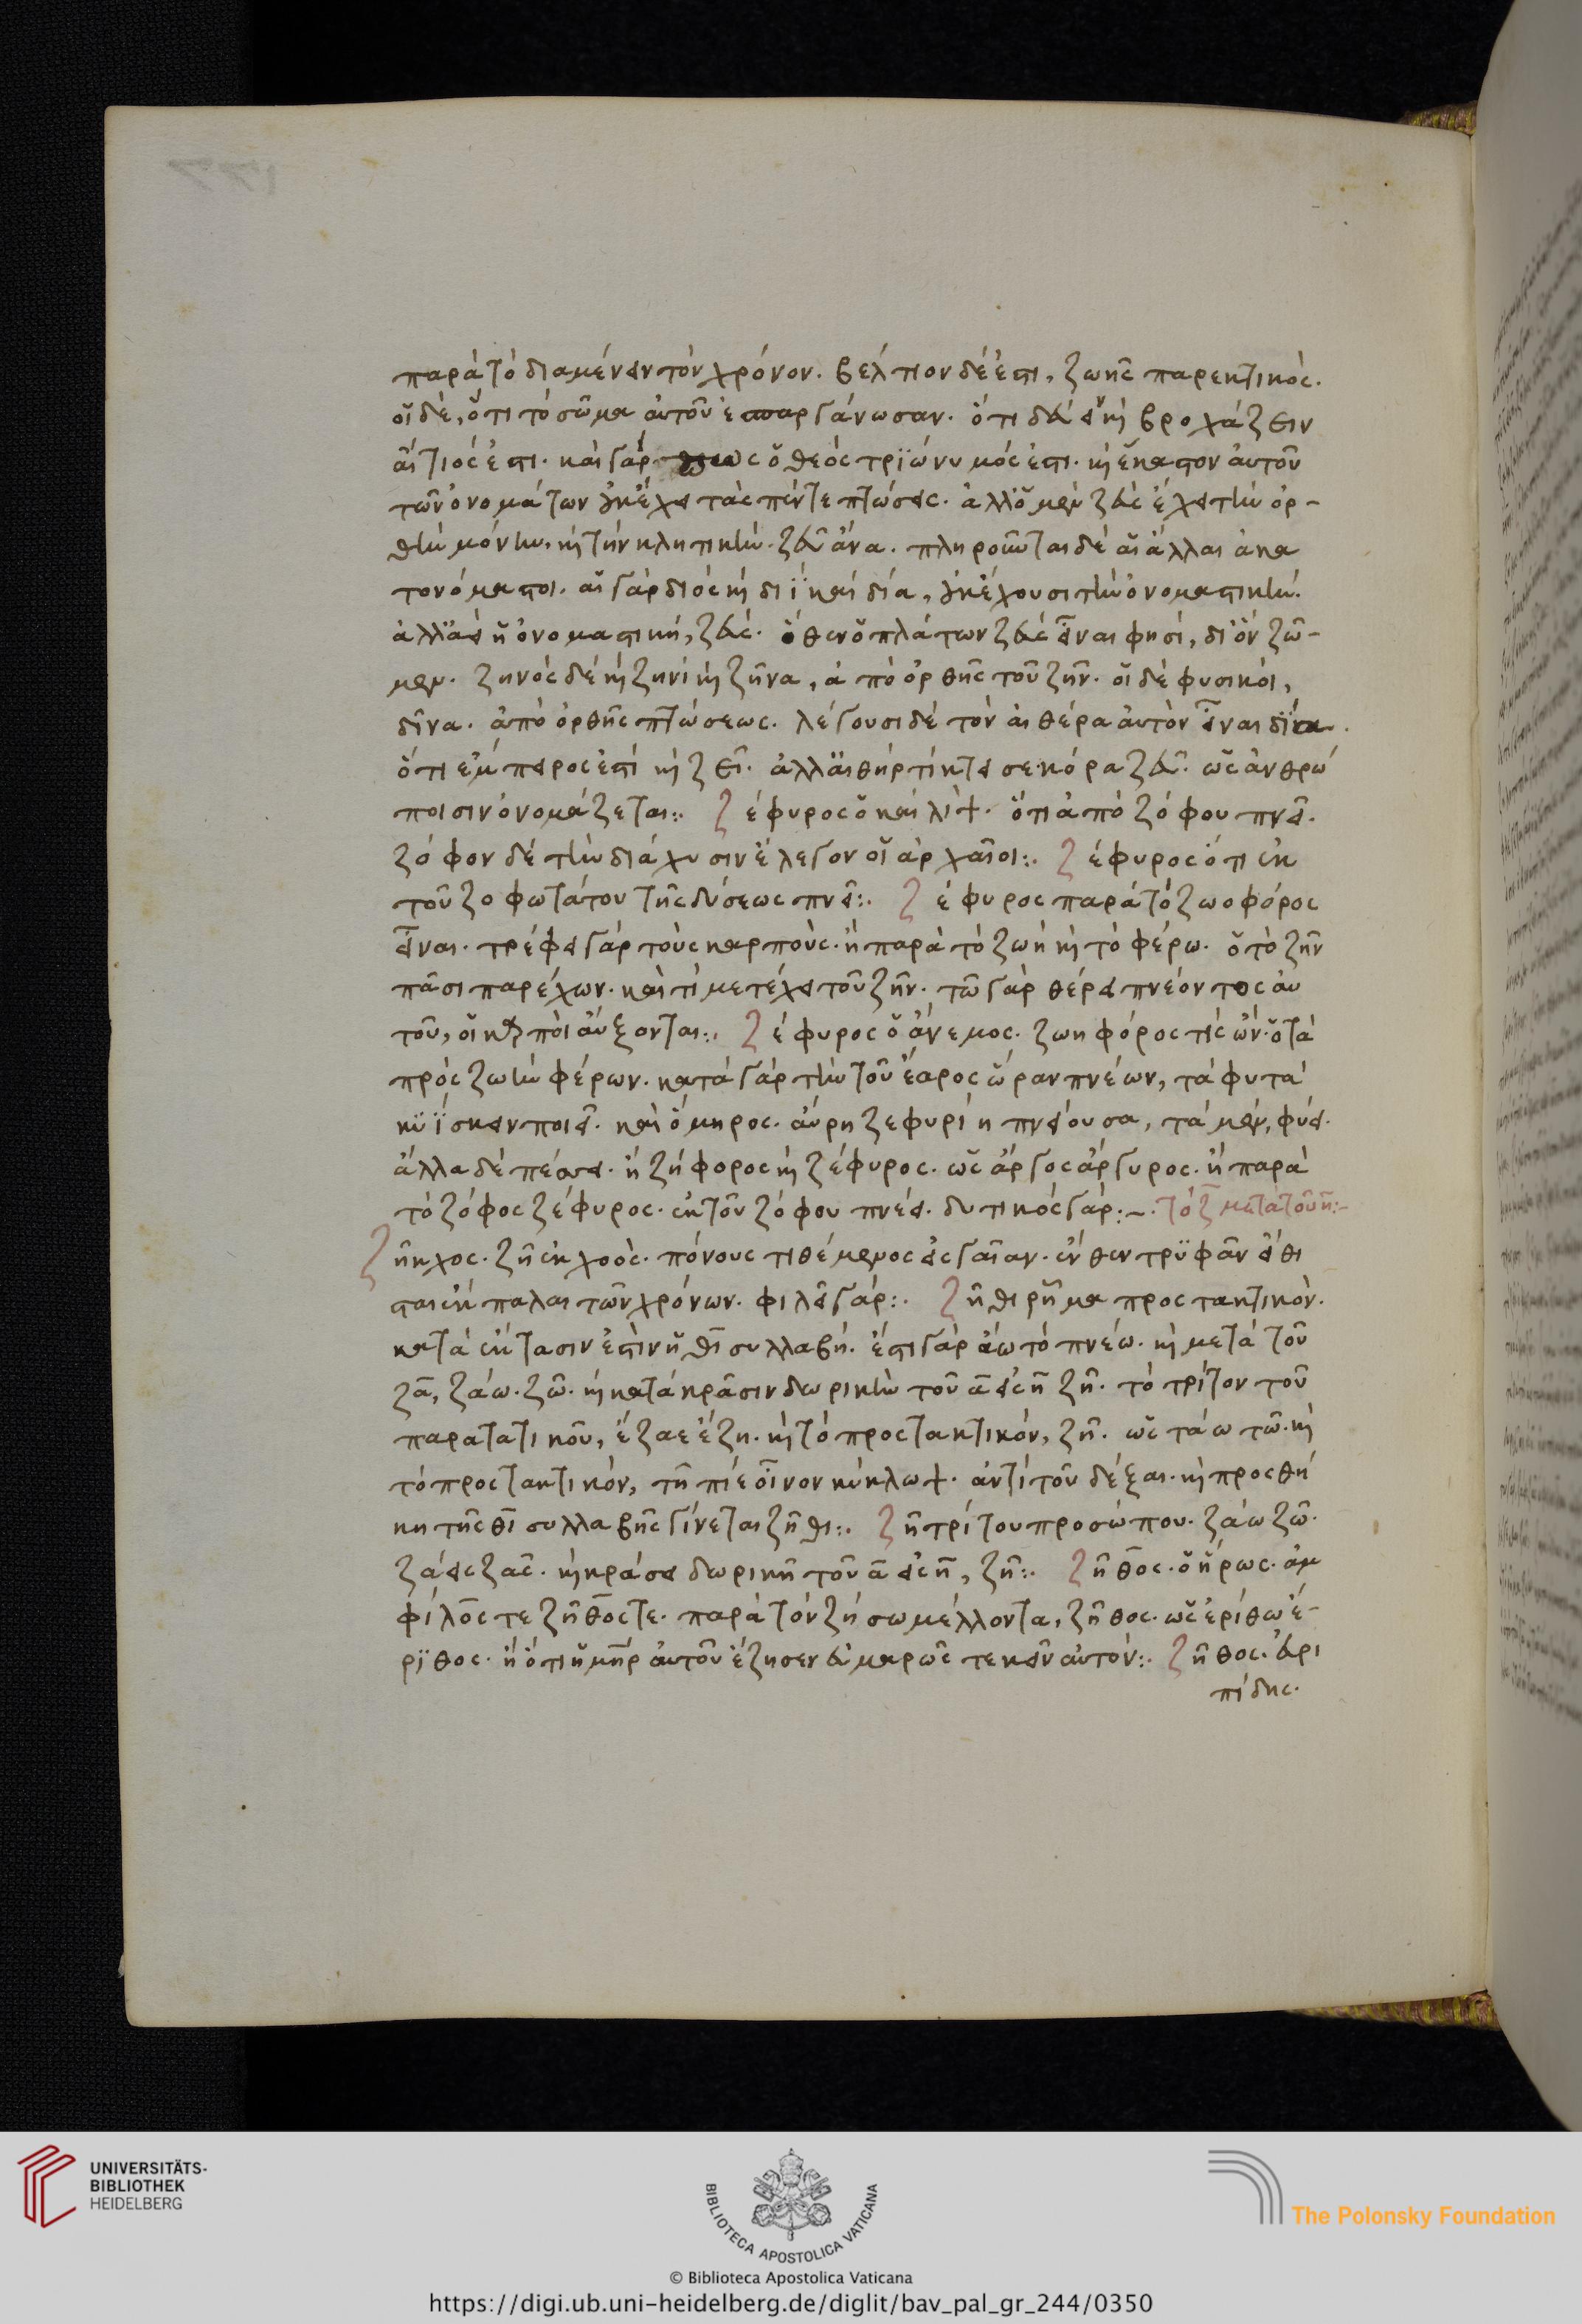 παρὰ τὸ διαμένειν τὸν χρόνον. βέλτιον δέ ἐστι, ζωῆς παρεκτικός.
οἱ δὲ, ὅτι τὸ σῶμα αὐτοῦ ἐσπαργάνωσαν. ὅτι δεύει ἢ βροχάζειν
αἴτιός ἐστι. καὶ γὰρ ὁ θεὸς τριώνυμός ἐστι. καὶ ἕκαστον αὐτοῦ
τῶν ὀνομάτων οὐκ ἔχει τὰς πέντε πτώσεις. ἀλλ' ὁ μὲν ζεὺς ἔχει τὴν ὀρ-
θὴν μόνην, καὶ τὴν κλητικὴν. ζεῦ ἄνα. πληροῦνται δὲ αἱ ἄλλαι ἀκα
τονόμαστοι. αἱ γὰρ διὸς καὶ διὶ καὶ δία, οὐκ ἔχουσι τὴν ὀνομαστικήν.
ἀλλ' ἀεὶ ἡ ὀνομαστικὴ, ζεύς. ὅθεν ὁ πλάτων ζεὺς εἶναι φησὶ, δι' ὃν ζῶ-
μεν. ζηνὸς δὲ καὶ ζηνὶ καὶ ζῆνα, ἀπὸ ὀρθῆς τοῦ ζῆν. οἱ δὲ φυσικοὶ,
δῖνα. ἀπὸ ὀρθῆς πτώσεως. λέγουσι δὲ τὸν αἰθέρα αὐτὸν εἶναι δῖνα.
ὅτι ἔμπειρός ἐστι καὶ ζεῖ. ἀλλ' αἰθήρ τίκτει σε κόρα ζεῦ. ὡς ἀνθρώ
ποισιν ὀνομάζεται:. ζέφυρος ὁ καὶ λίψ. ὅτι ἀπὸ ζόφου πνεῖ.
ζόφον δὲ τὴν διάχυσιν ἔλεγον οἱ ἀρχαῖοι:. ζέφυρος ὅτι ἐκ
τοῦ ζοφωτάτου τῆς δύσεως πνεῖ:. ζέφυρος παρὰ τὸ ζωοφόρος
εἶναι. τρέφει γὰρ τοὺς καρπούς. ἢ παρὰ τὸ ζωὴ καὶ τὸ φέρω. ὁ τὸ ζῆν
πᾶσι παρέχων. καὶ τὶ μετέχει τοῦ ζῆν. τῶ γὰρ θέρει πνέοντος αὐ
τοῦ, οἱ καρποὶ αὔξονται:. ζέφυρος ὁ ἄνεμος. ζωηφόρος τίς ὤν. ὁ τὰ
πρὸς ζωὴν φέρων. κατὰ γὰρ τὴν τοῦ ἔαρος ὥραν πνέων, τὰ φυτὰ
κυΐσκειν ποιεῖ. καὶ ὅμηρος. αὔρη ζεφυρίη πνείουσα, τὰ μὲν, φύει.
ἄλλα δὲ πέσσει. ἢ ζήφορος καὶ ζέφυρος. ὡς ἀργὸς ἄργυρος. ἢ παρὰ
τὸ ζόφος ζέφυρος. ἐκ τοῦ ζόφου πνέει. δυτικὸς γάρ:-. τὸ ζ μετὰ τοῦ η:-
ζῆκχος. ζῆ ἐκ χοός. πόνους τιθέμενος εἰς γαῖαν. ἔνθεν τρυφᾶν εἴθι
σται ἐκ πάλαι τῶν χρόνων. φιλεῖ γάρ:. ζῆθι ῥῆμα προστακτικόν.
κατὰ ἔκτασιν ἐστὶν ἡ θι συλλαβή. ἔστι γὰρ ἄω τὸ πνέω. καὶ μετὰ τοῦ
ζα, ζάω. ζῶ. καὶ κατὰ κρᾶσιν δωρικὴν τοῦ α εἰς η ζῆ. τὸ τρίτον τοῦ
παρατατικοῦ, ἔζαε ἔζη. καὶ τὸ προστακτικόν, ζῆ. ὡς τάω τῶ. καὶ
τὸ προστακτικόν, τῆ πίε οἶνον κύκλωψ. ἀντὶ τοῦ δέξαι. καὶ προσθή
κη τῆς θι συλλαβῆς γίνεται ζῆθι:. ζῆ τρίτου προσώπου. ζάω ζῶ.
ζάεις ζᾶς. καὶ κράσει δωρικῆ τοῦ α εἰς η, ζῆ:. ζῆθος. ὁ ἥρως. ἀμ
φίλός τε ζῆθός τε. παρὰ τὸν ζήσω μέλλοντα, ζῆθος. ὡς ἐρίθω ἔ-
ριθος. ἢ ὅτι ἡ μήτηρ αὐτοῦ ἐζήτησεν εὐμαρῶς τεκεῖν αὐτόν:. ζῆθος. εὐρι
πίδης.
UNIVERSITÄTS-
BIBLIOTHEK
HEIDELBERG
BIBLIOTECA APOSTOLICA VATICANA
The Polonsky Foundation
© Biblioteca Apostolica Vaticana
https://digi.ub.uni-heidelberg.de/diglit/bav_pal_gr_244/0350